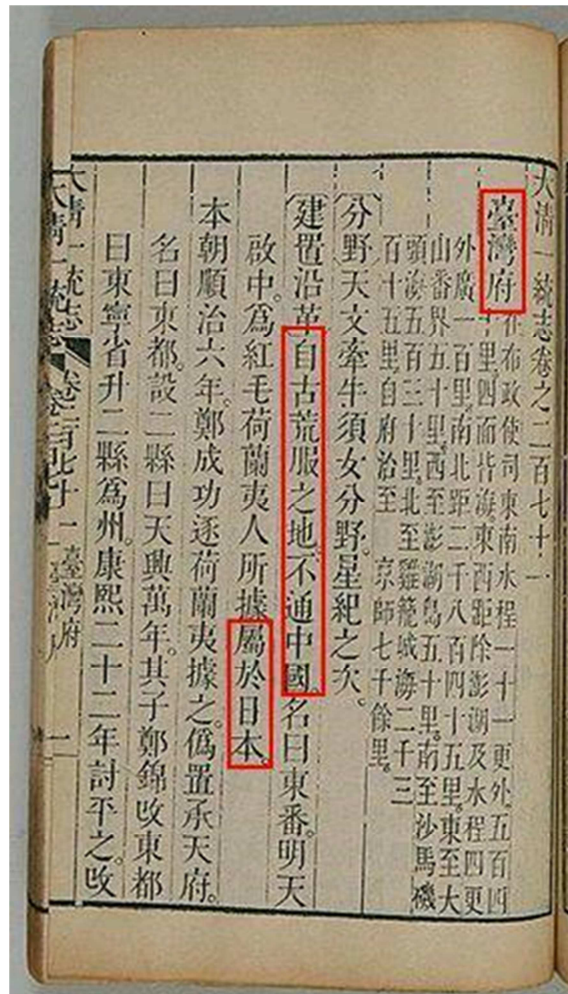 大清一統志卷之二百七十一
臺灣府在布政使司東南水程一十一更外五百四
十里四面皆海東西距除澎湖及水程四更
外廣一百里南北距二千八百四十五里東至大
山番界五十里西至澎湖島五十里南至沙馬磯
頭海五百三十里北至雞籠城海二千三
百十五里自府治至 京師七千餘里
分野天文牽牛須女分野星紀之次。
建置沿革自古荒服之地不通中國。名曰東番。明天
啟中。為紅毛荷蘭夷人所據屬於日本。
本朝順治六年。鄭成功逐荷蘭夷據之。偽置承天府。
名曰東都。設二縣曰天興萬年。其子鄭錦改東都
曰東寧省升二縣為州。康熙二十二年討平之。改
大清一統志 卷二百七十一 臺灣府 一
大清一統志